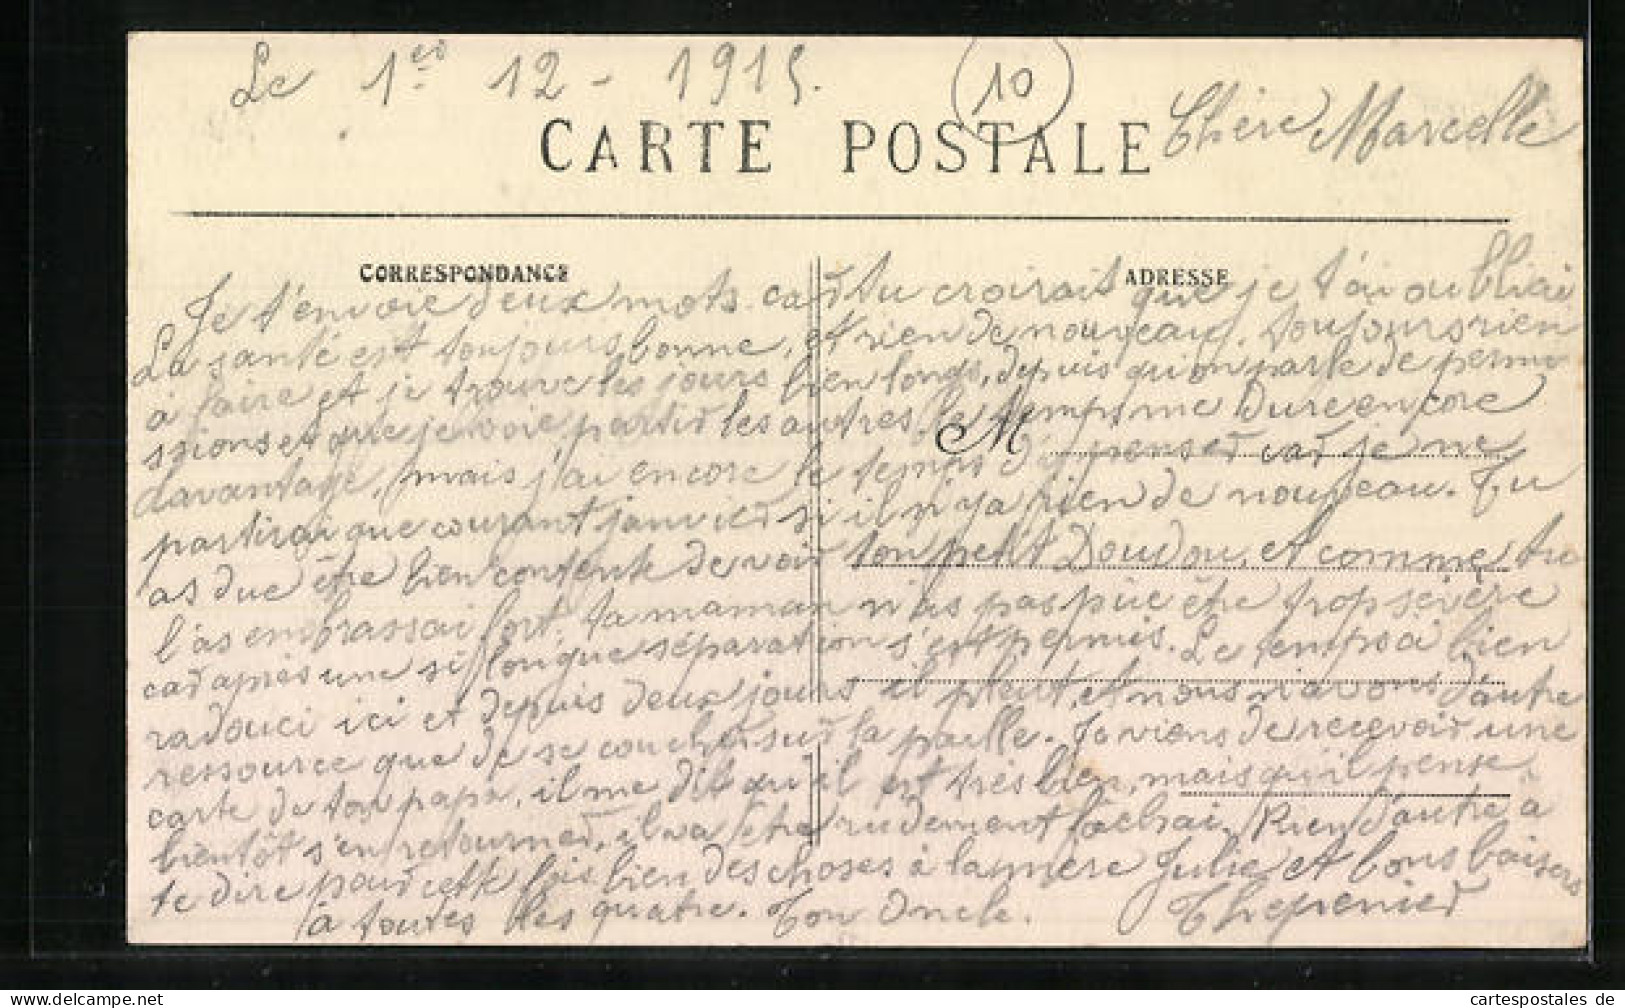 Le 1er 12 - 1915.
10
Chère Marcelle
CARTE POSTALE
CORRESPONDANCE
ADRESSE
Je t'envoie deux mots car tu croirait que je t'ai oubliai
La santé est toujours bonne, et rien de nouveau. toujours rien
à faire et je trouve les jours bien longs, depuis qu'on parle de permi
ssions et que je voie partir les autres, le temps me dure encore
M
davantage, mais j'ai encore le temps d'y penser car je ne
partirai que courant janvier si il n'y a rien de nouveau. Tu
as due être bien contente de voir ton petit Doudou, et comme tu
l'as embrassai fort, ta maman n'as pas pue être trop sévère
car après une si longue séparation s'est permis. Le temps à bien
radouci ici et depuis deux jours il pleut, et nous n'avons d'autre
ressource que de se coucher sur la paille. Je viens de recevoir une
carte de ton papa, il me dit qu'il est très bien, mais qu'il pense
bientôt s'en retourner, il va être rudement fâchai. Rien d'autre à
te dire pour cette fois, bien des choses à la mère Julie et bons baisers
à toutes les quatre. Ton Oncle. Thepenier
cartespostales de
www.cartespostales.de